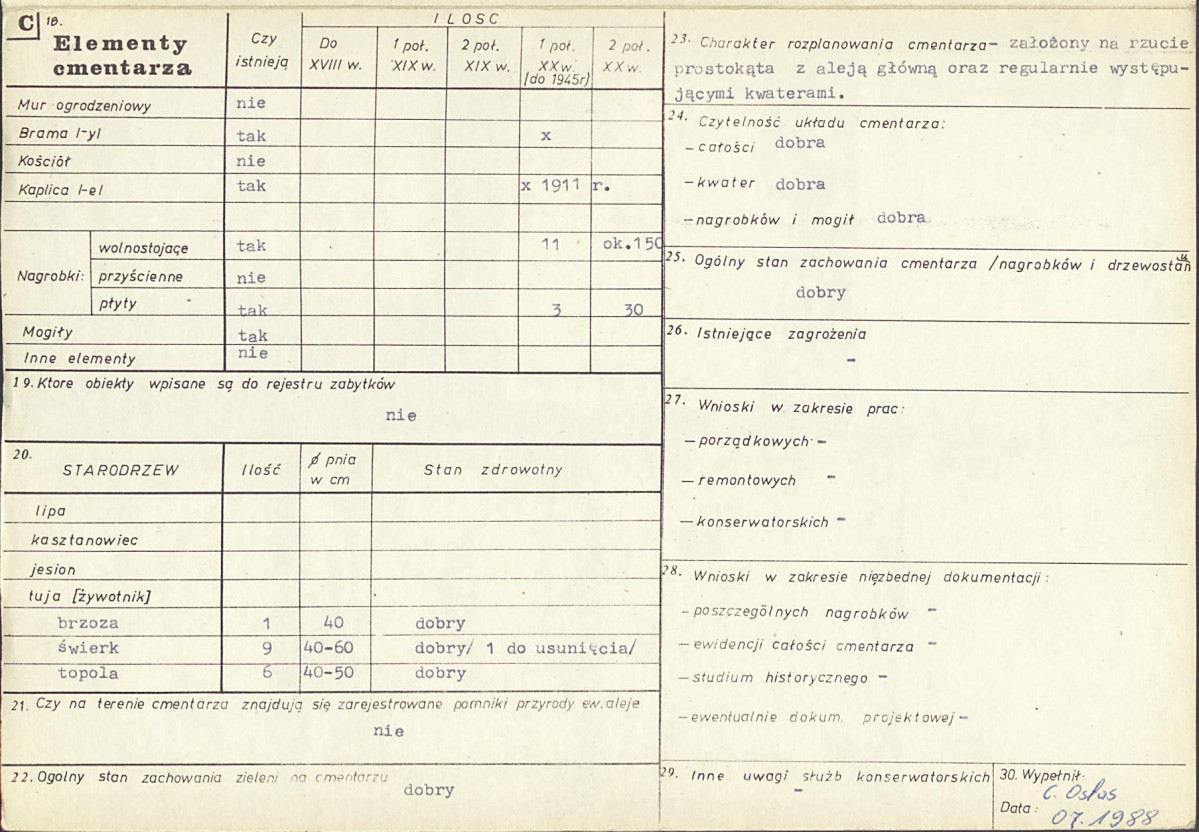 C 18.
Elementy
cmentarza
Czy
istnieją
ILOSC
Do
XVIII w.
1 poł.
XIX w.
2 poł.
XIX w.
1 poł.
XX w.
/do 1945r/
2 poł.
XX w.
Mur ogrodzeniowy nie
Brama /-y/ tak x
Kościół nie
Kaplica /-e/ tak x 1911 r.
Nagrobki:
wolnostojące tak 11 ok.150
przyścienne nie
płyty tak 3 30
Mogiły tak
Inne elementy nie
19. Ktore obiekty wpisane są do rejestru zabytków
nie
20.
STARODRZEW Ilość ø pnia
w cm Stan zdrowotny
lipa
kasztanowiec
jesion
tuja [żywotnik]
brzoza 1 40 dobry
świerk 9 40-60 dobry/ 1 do usunięcia/
topola 6 40-50 dobry
21. Czy na terenie cmentarza znajdują się zarejestrowane pomniki przyrody ew. aleje
nie
22. Ogolny stan zachowania zieleni na cmentarzu
dobry
23. Charakter rozplanowania cmentarza- założony na rzucie
prostokąta z aleją główną oraz regularnie występu-
jącymi kwaterami.
24. Czytelność układu cmentarza:
- całości dobra
- kwater dobra
- nagrobków i mogił dobra
25. Ogólny stan zachowania cmentarza /nagrobków i drzewostanu
dobry
26. Istniejące zagrożenia
-
27. Wnioski w zakresie prac:
- porządkowych -
- remontowych -
- konserwatorskich -
28. Wnioski w zakresie nięzbednej dokumentacji:
- poszczególnych nagrobków -
- ewidencji całości cmentarza -
- studium historycznego -
- ewentualnie dokum. projektowej -
29. Inne uwagi służb konserwatorskich
-
30. Wypełnił:
C.
Data: 07.1988